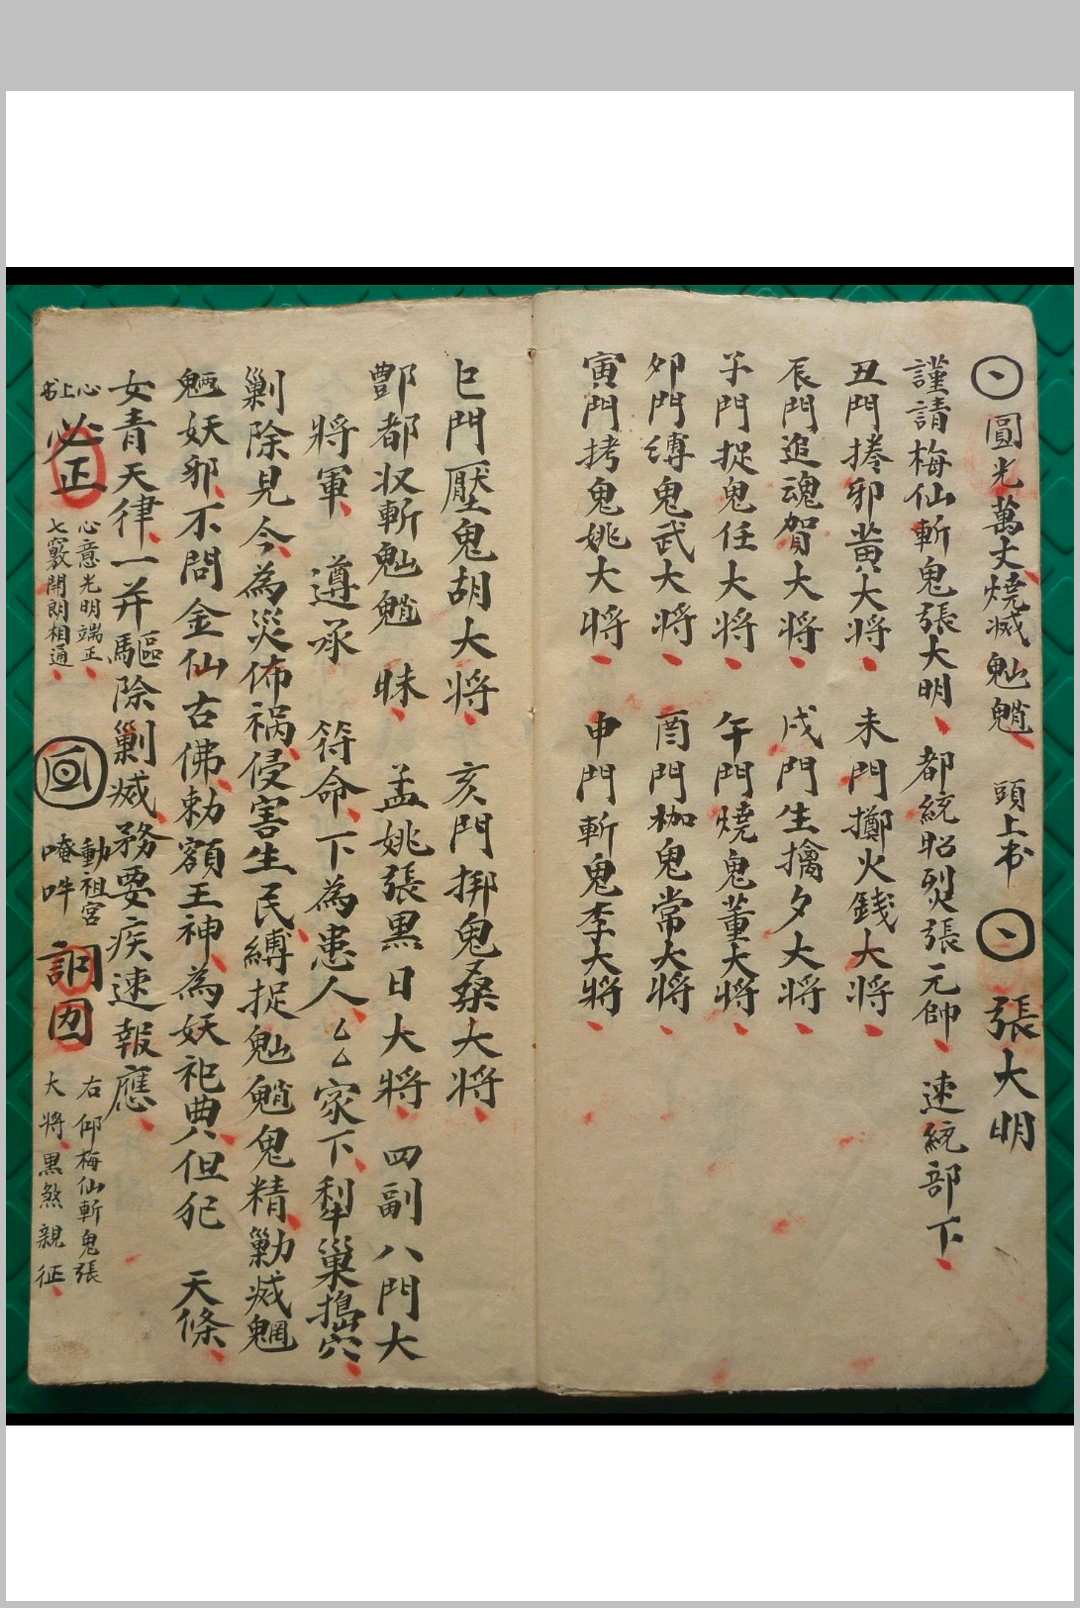 圓光萬丈燒滅魈 頭上书 張大明
謹請梅仙斬鬼張大明 都統昭烈張元帥 速統部下
丑門捲邪黃大将 未門擲火錢大将
辰門追魂賀大将 戌門生擒夕大将
子門捉鬼任大将 午門燒鬼董大将
卯門縛鬼武大将 酉門枷鬼常大将
寅門拷鬼姚大将 申門斬鬼李大将
巳門壓鬼胡大将 亥門掷鬼桑大将
酆都収斬魈 昧 孟姚張黑日大將 四副八門大
將軍 遵承 符命下為患人厶厶家下犁巢搗穴
剿除見今為災佈禍侵害生民縛捉魈鬼精勦滅魍
魎妖邪不問金仙古佛勅額王神為妖祀典但犯 天條
女青天律一并驅除剿滅務要疾速報應
心上书 正
心意光明端正
七竅開朗相通
動祖宮
唵吽
右仰梅仙斬鬼張
大將黑煞親征